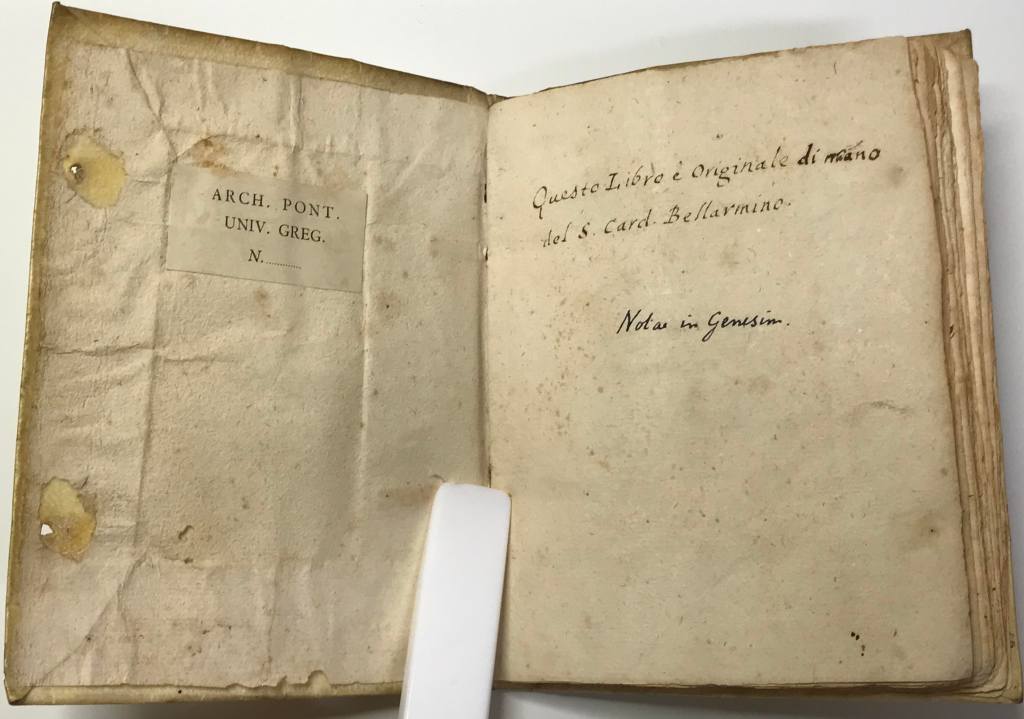 ARCH. PONT.
UNIV. GREG.
N.............
Questo Libro è Originale di mano
del S. Card. Bellarmino.
Notae in Genesim.